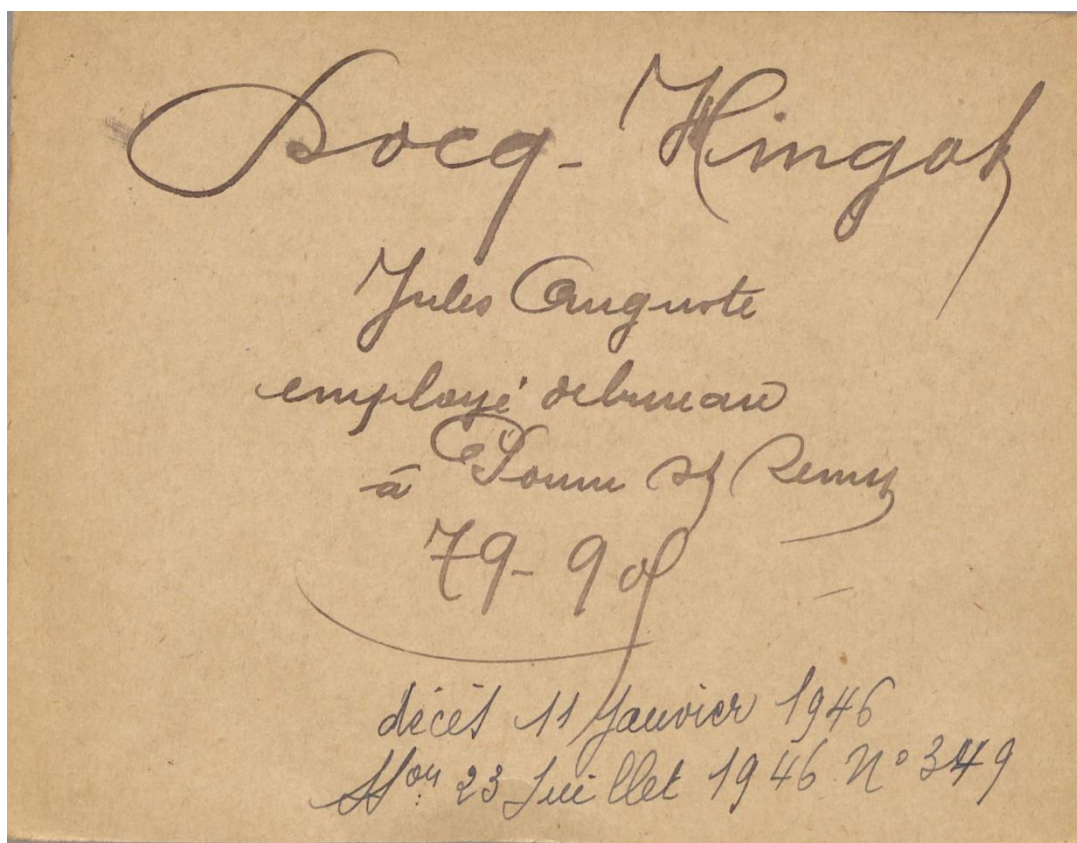 Docq - Hingot
Jules Auguste
employé de bureau
à Somme St Remy
79-90
décès 11 Janvier 1946
Son 23 Juillet 1946 N° 349